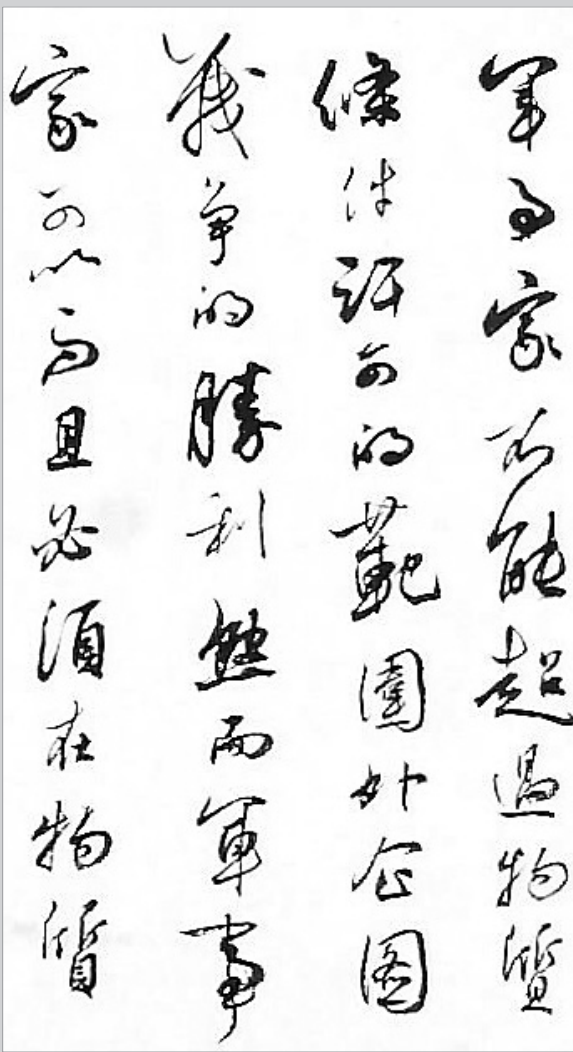 軍事家不能超過物質
條件許可的範圍外企圖
戰爭的勝利然而軍事
家可以而且必須在物質